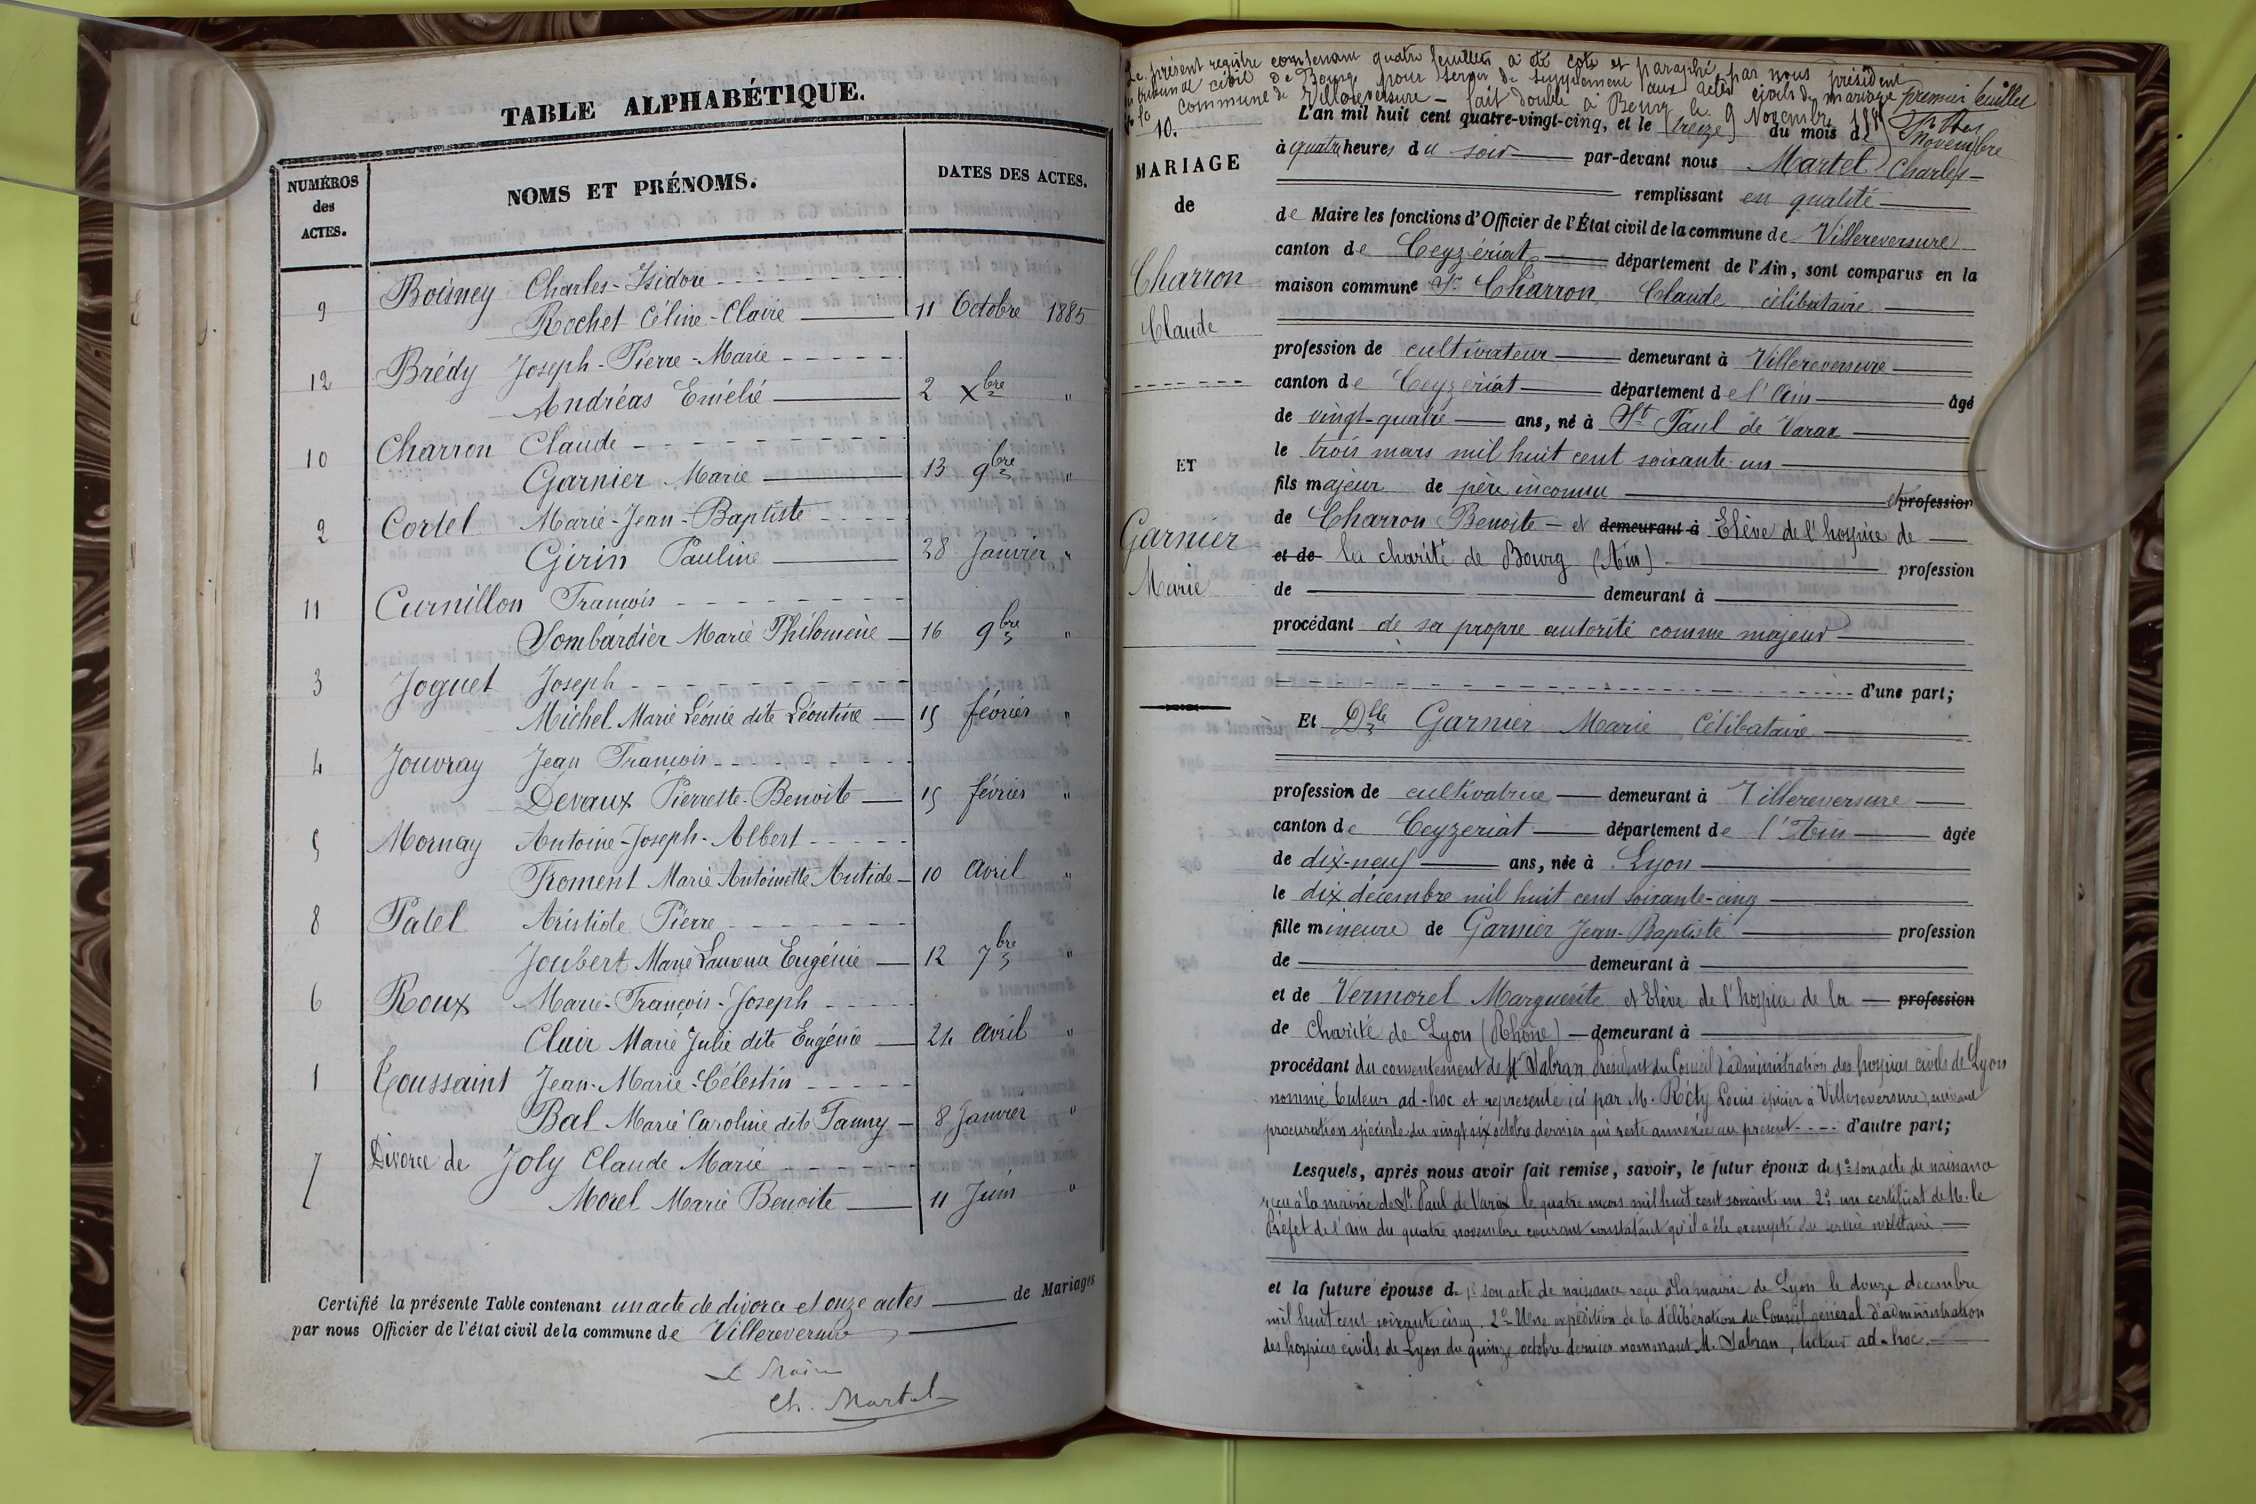 TABLE ALPHABÉTIQUE.
NUMÉROS des ACTES. NOMS ET PRÉNOMS. DATES DES ACTES.
9 Boisney Charles-Isidore
Rochet Céline-Claire 11 Octobre 1885
12 Brédy Joseph-Pierre-Marie
Andréas Emélie 2 Xbre "
10 Charron Claude
Garnier Marie 13 9bre "
2 Cortel Marie-Jean-Baptiste
Girin Pauline 28 Janvier "
11 Curnillon François
Sombardier Marie Philomène 16 9bre "
3 Joguet Joseph
Michel Marie Léonie dite Léontine 15 février "
4 Jouvray Jean François
Devaux Pierrette-Benoite 15 février "
5 Mornay Antoine-Joseph-Albert
Froment Marie Antoinette Antide 10 avril "
8 Patel Aristide Pierre
Joubert Marie Laurence Eugénie 12 7bre "
6 Roux Marie-François-Joseph
Clair Marie Julie dite Eugénie 24 avril "
1 Toussaint Jean-Marie-Célestin
Bal Marie Caroline dite Fanny 8 Janvier "
7 Divorce de Joly Claude Marie
Morel Marie Benoite 11 Juin "
Certifié la présente Table contenant un acte de divorce et onze actes de Mariages
par nous Officier de l'état civil de la commune de Villereversure
Le Maire
Ch. Martel
Le présent registre contenant quatre feuillets a été coté et paraphé par nous président
du tribunal civil de Bourg pour servir de supplément aux actes civils de mariage
de la commune de Villereversure - fait double à Bourg le 9 Novembre 1885
premier feuillet
10.
MARIAGE
de
Charron
Claude
ET
Garnier
Marie
L'an mil huit cent quatre-vingt-cinq, et le treize du mois de Novembre
à quatre heures du soir par-devant nous Martel Charles
remplissant en qualité
de Maire les fonctions d'Officier de l'État civil de la commune de Villereversure
canton de Ceyzériat département de l'Ain, sont comparus en la
maison commune Sr Charron Claude célibataire
profession de cultivateur demeurant à Villereversure
canton de Ceyzeriat département de l'Ain âgé
de vingt-quatre ans, né à St Paul de Varax
le trois mars mil huit cent soixante-un
fils majeur de père inconnu et profession
de Charron Benoite - et demeurant à Elève de l'hospice de
et de la charité de Bourg (Ain) profession
de demeurant à
procédant de sa propre autorité comme majeur
d'une part;
Et Dlle Garnier Marie célibataire
profession de cultivatrice demeurant à Villereversure
canton de Ceyzeriat département de l'Ain âgée
de dix-neuf ans, née à Lyon
le dix décembre mil huit cent soixante-cinq
fille mineure de Garnier Jean-Baptiste profession
de demeurant à
et de Vermorel Marguerite et Elève de l'hospice de la profession
de charité de Lyon (Rhône) demeurant à
procédant du consentement de Mr Sabran président du Conseil d'administration des hospices civils de Lyon
nommé tuteur ad-hoc et représenté ici par M. Réty Louis épicier à Villereversure, suivant
procuration spéciale du vingt six octobre dernier qui reste annexée au présent d'autre part;
Lesquels, après nous avoir fait remise, savoir, le futur époux de 1° son acte de naissance
reçu à la mairie de St Paul de Varax le quatre mars mil huit cent soixante un 2° un certificat de M. le
Préfet de l'Ain du quatre novembre courant constatant qu'il a été exempté du service militaire
et la future épouse de 1° son acte de naissance reçu à la mairie de Lyon le douze décembre
mil huit cent soixante cinq. 2° Une expédition de la délibération du Conseil général d'administration
des hospices civils de Lyon du quinze octobre dernier nommant M. Sabran, tuteur ad-hoc.